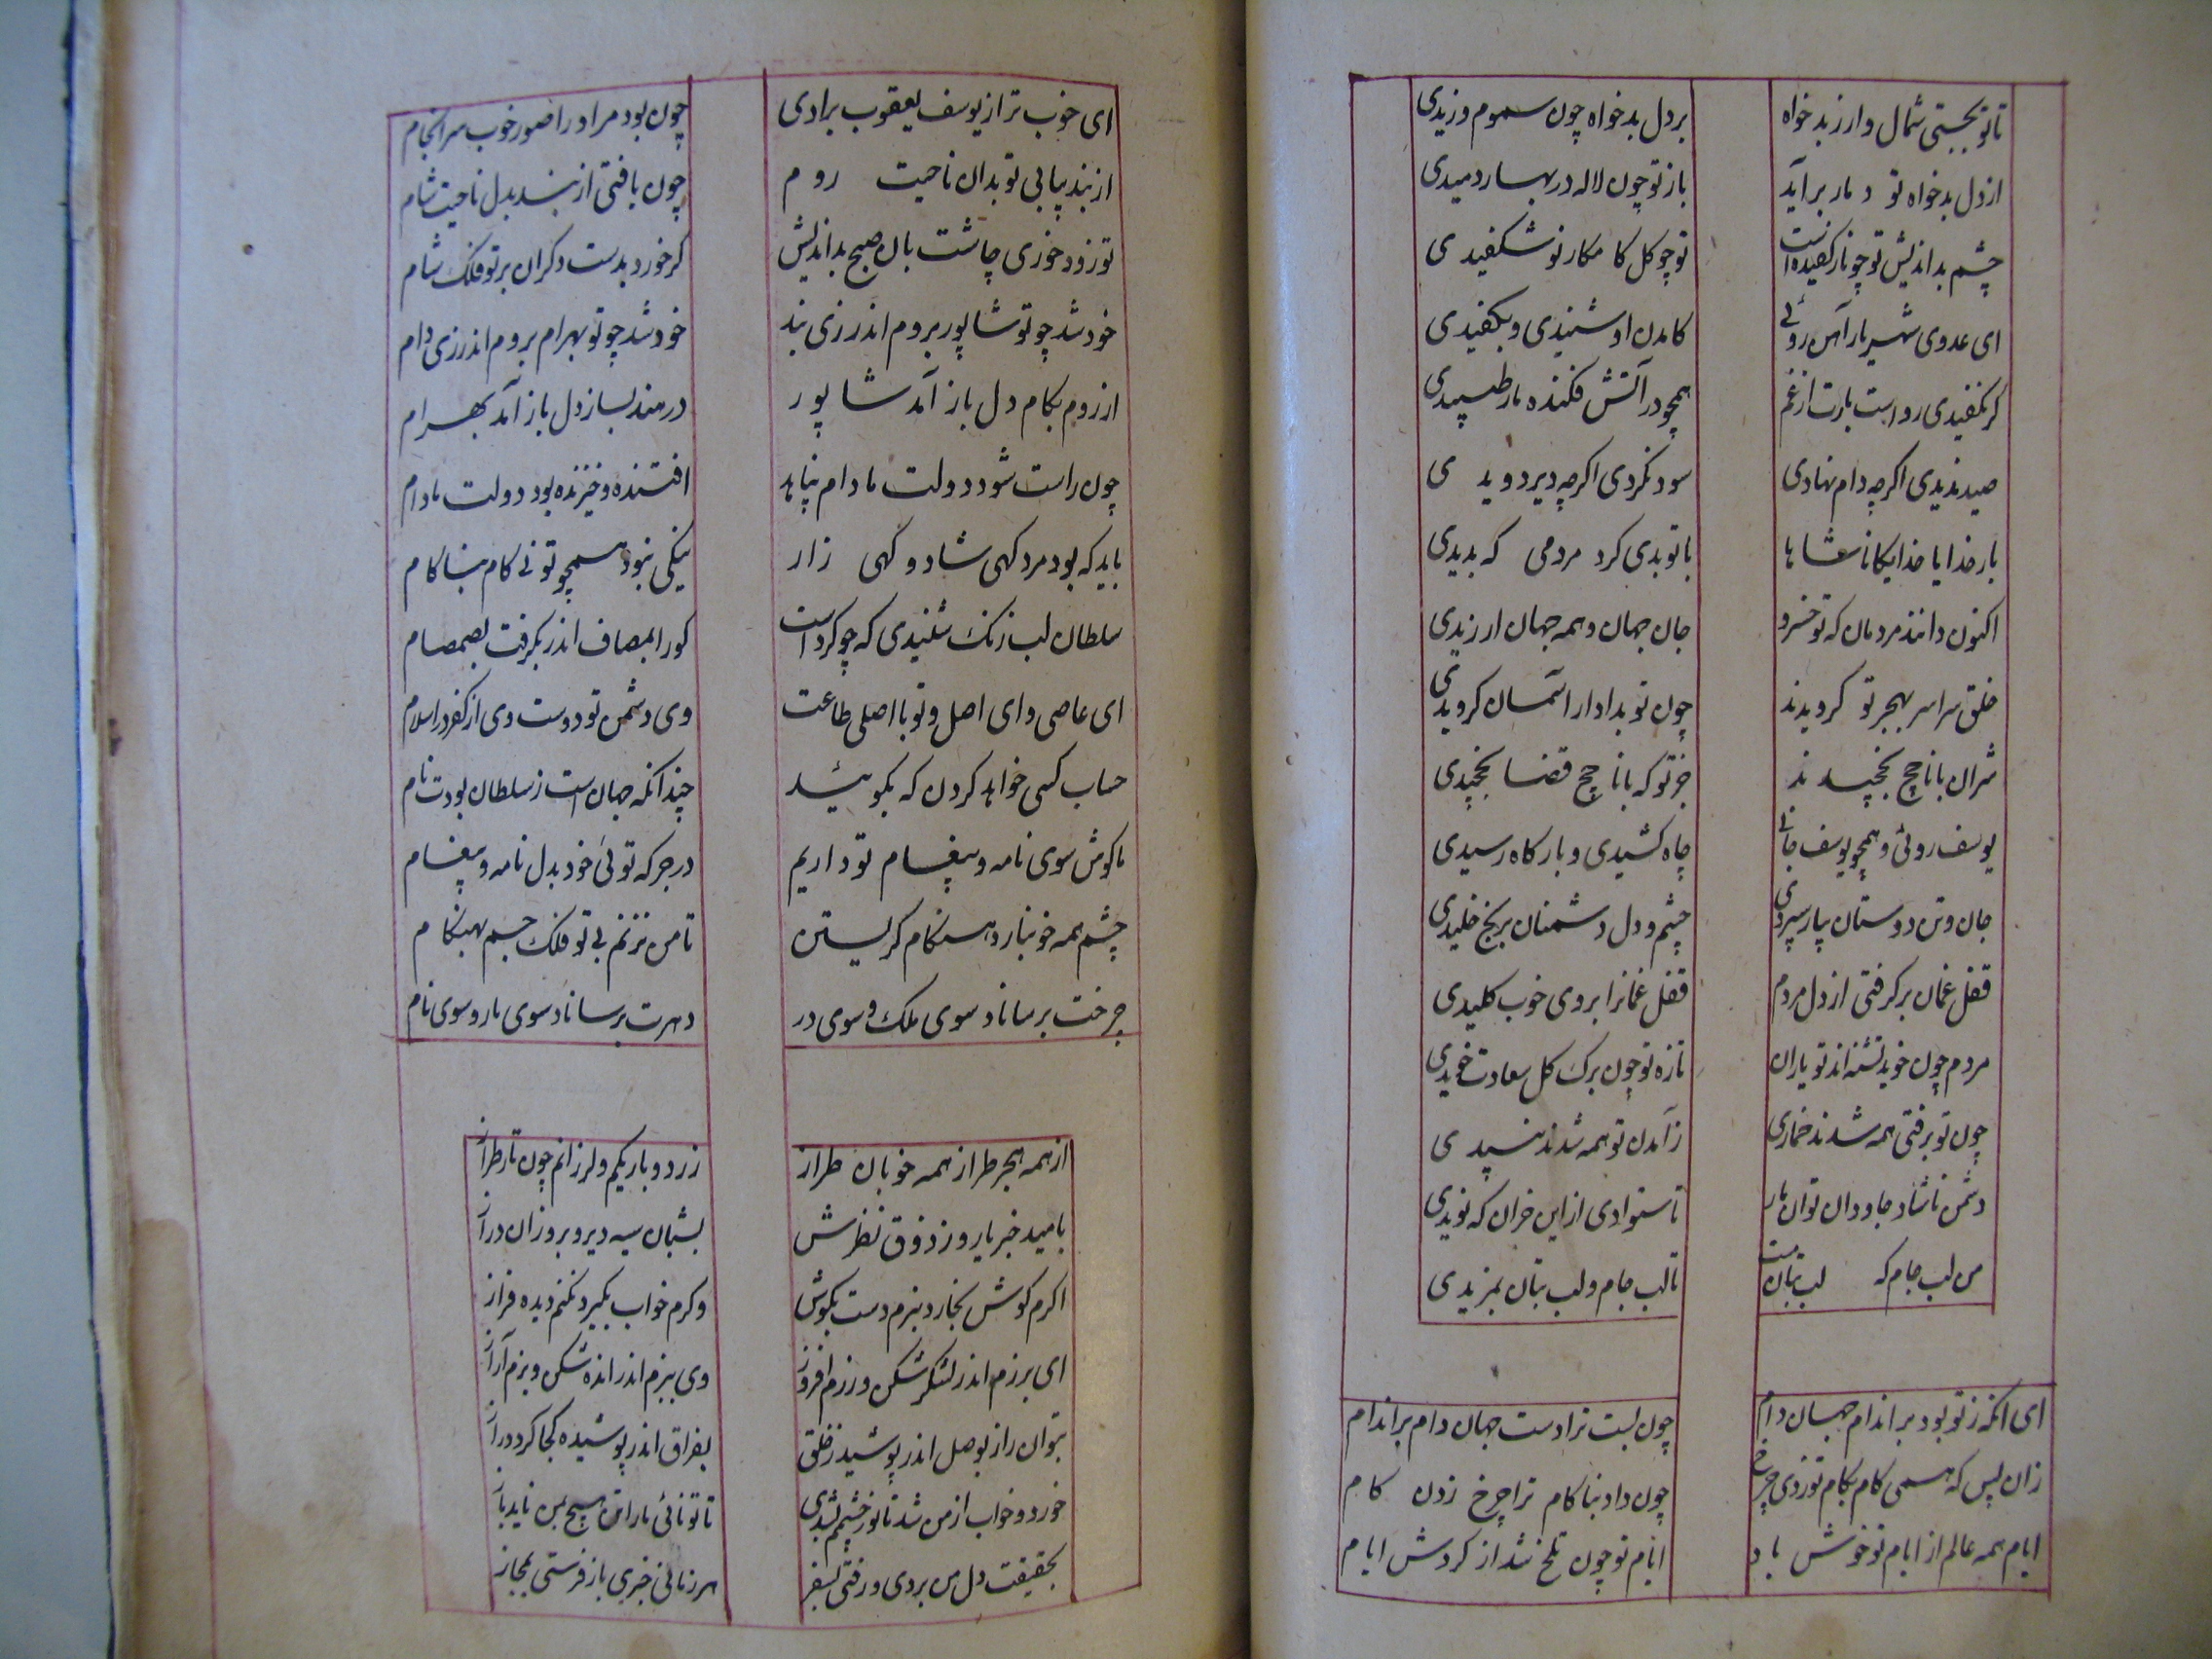 تا تو بجستی شمال وار ز بدخواه
بر دل بدخواه چون سموم وزیدی
از دل بدخواه تو دمار برآید
باز تو چون لاله در بهار دمیدی
چشم بداندیش تو چو نار کفیده است
تو چو کل کامکار نو شکفیدی
ای عدوی شهریار آهن روئی
کامدن او شنیدی و بکفیدی
کر نکفیدی رواست بارت از غم
همچو در آتش فکنده مار طپیدی
صید ندیدی اکرچه دام نهادی
سود نکردی اکرچه دیر دویدی
بار خدایا خدایکانا شاها
با تو بدی کرد مردمی که بدیدی
اکنون دانند مردمان که تو خسرو
جان جهان و همه جهان ارزیدی
خلق سراسر بهجر تو کرویدند
چون تو بدادار آسمان کرویدی
شران با ناچخ بخچیدند
جز تو که با ناچخ قضا بخچیدی
یوسف روئی و همچو یوسف جانی
چاه کشیدی و بارکاه رسیدی
جان و تن دوستان بیار سپردی
چشم و دل دشمنان برنج خلیدی
قفل غمان برکرفتی از دل مردم
قفل غمانرا بروی خوب کلیدی
مردم چون خوید تشنه‌اند تو باران
تازه تو چون برک کل سعادت خویدی
چون تو برفتی همه شدند خماری
زآمدن تو همه شدند نبیدی
دشمن ناشاد جاودان توان بار
تا ستوادی از این خران که نویدی
من لب جام که لب بتان است
تا لب جام و لب بتان بمزیدی
ای آنکه ز تو بود بر اندام جهان دام
چون بست ترا دست جهان دام بر اندام
زان پس که همی کام بکام تو زدی چرخ
چون داد بناکام ترا چرخ زدن کام
ایام همه عالم از ایام تو خوش باد
ایام تو چون تلخ شد از کردش ایام
ای خوب تر از یوسف یعقوب برادی
چون بود مر او را صور خوب سرانجام
از بند بیابی تو بدان ناحیت روم
چون یافتی از بند بدل ناحیت شام
تو زود خوری چاشت بان صبح بداندیش
کر خورد بدست دکران بر تو فلک شام
خود شد چو تو شاپور بروم اندر زی بند
خود شد چو تو بهرام بروم اندر زی دام
از روم بکام دل باز آمد شاپور
در هند بساز دل باز آمد بهرام
چون راست شود دولت مادام نپاید
افتنده و خیزنده بود دولت مادام
باید که بود مرد کهی شاد و کهی زار
نیکی نبود همچو تو نی کام بناکام
سلطان لب زنک شنیدی که چو کرد است
کورا بمصاف اندر بکرفت بصمصام
ای عاصی و ای اصل و تو با اصلی طاعت
وی دشمن تو دوست وی از کفر در اسلام
حساب کسی خواهد کردن که بکوشید
چندانکه جهان است ز سلطان بودت نام
ما کوش سوی نامه و پیغام تو داریم
در هجر که توئی خود بدل نامه و پیغام
چشم همه خونبارد هنکام کریستن
تا من نزنم بی تو فلک جسم بهنکام
چرخت برساناد سوی ملک و سوی در
دهرت برساناد سوی بار و سوی نام
از همه هجر طراز همه خوبان طراز
زرد و باریکم و لرزانم چون تار طراز
بامید خبر یار و ز ذوق نظرش
بشبان سیه دیر و بروزان دراز
اکرم کوش بخارد ببرم دست بکوش
وکرم خواب بکیرد نکنم دیده فراز
ای برزم اندر لشکر شکن و رزم افروز
وی ببزم اندر انده شکن و بزم آراز
بتوان راز بوصل اندر پوشید ز خلق
بفراق اندر پوشیده کجا کردد راز
خورد و خواب از من شد تا تو ز چشمم بشدی
تا تو نائی باز این هیچ بمن ناید باز
بحقیقت دل من بردی و رفتی بسفر
هر زمانی خبری باز فرستی بمجاز